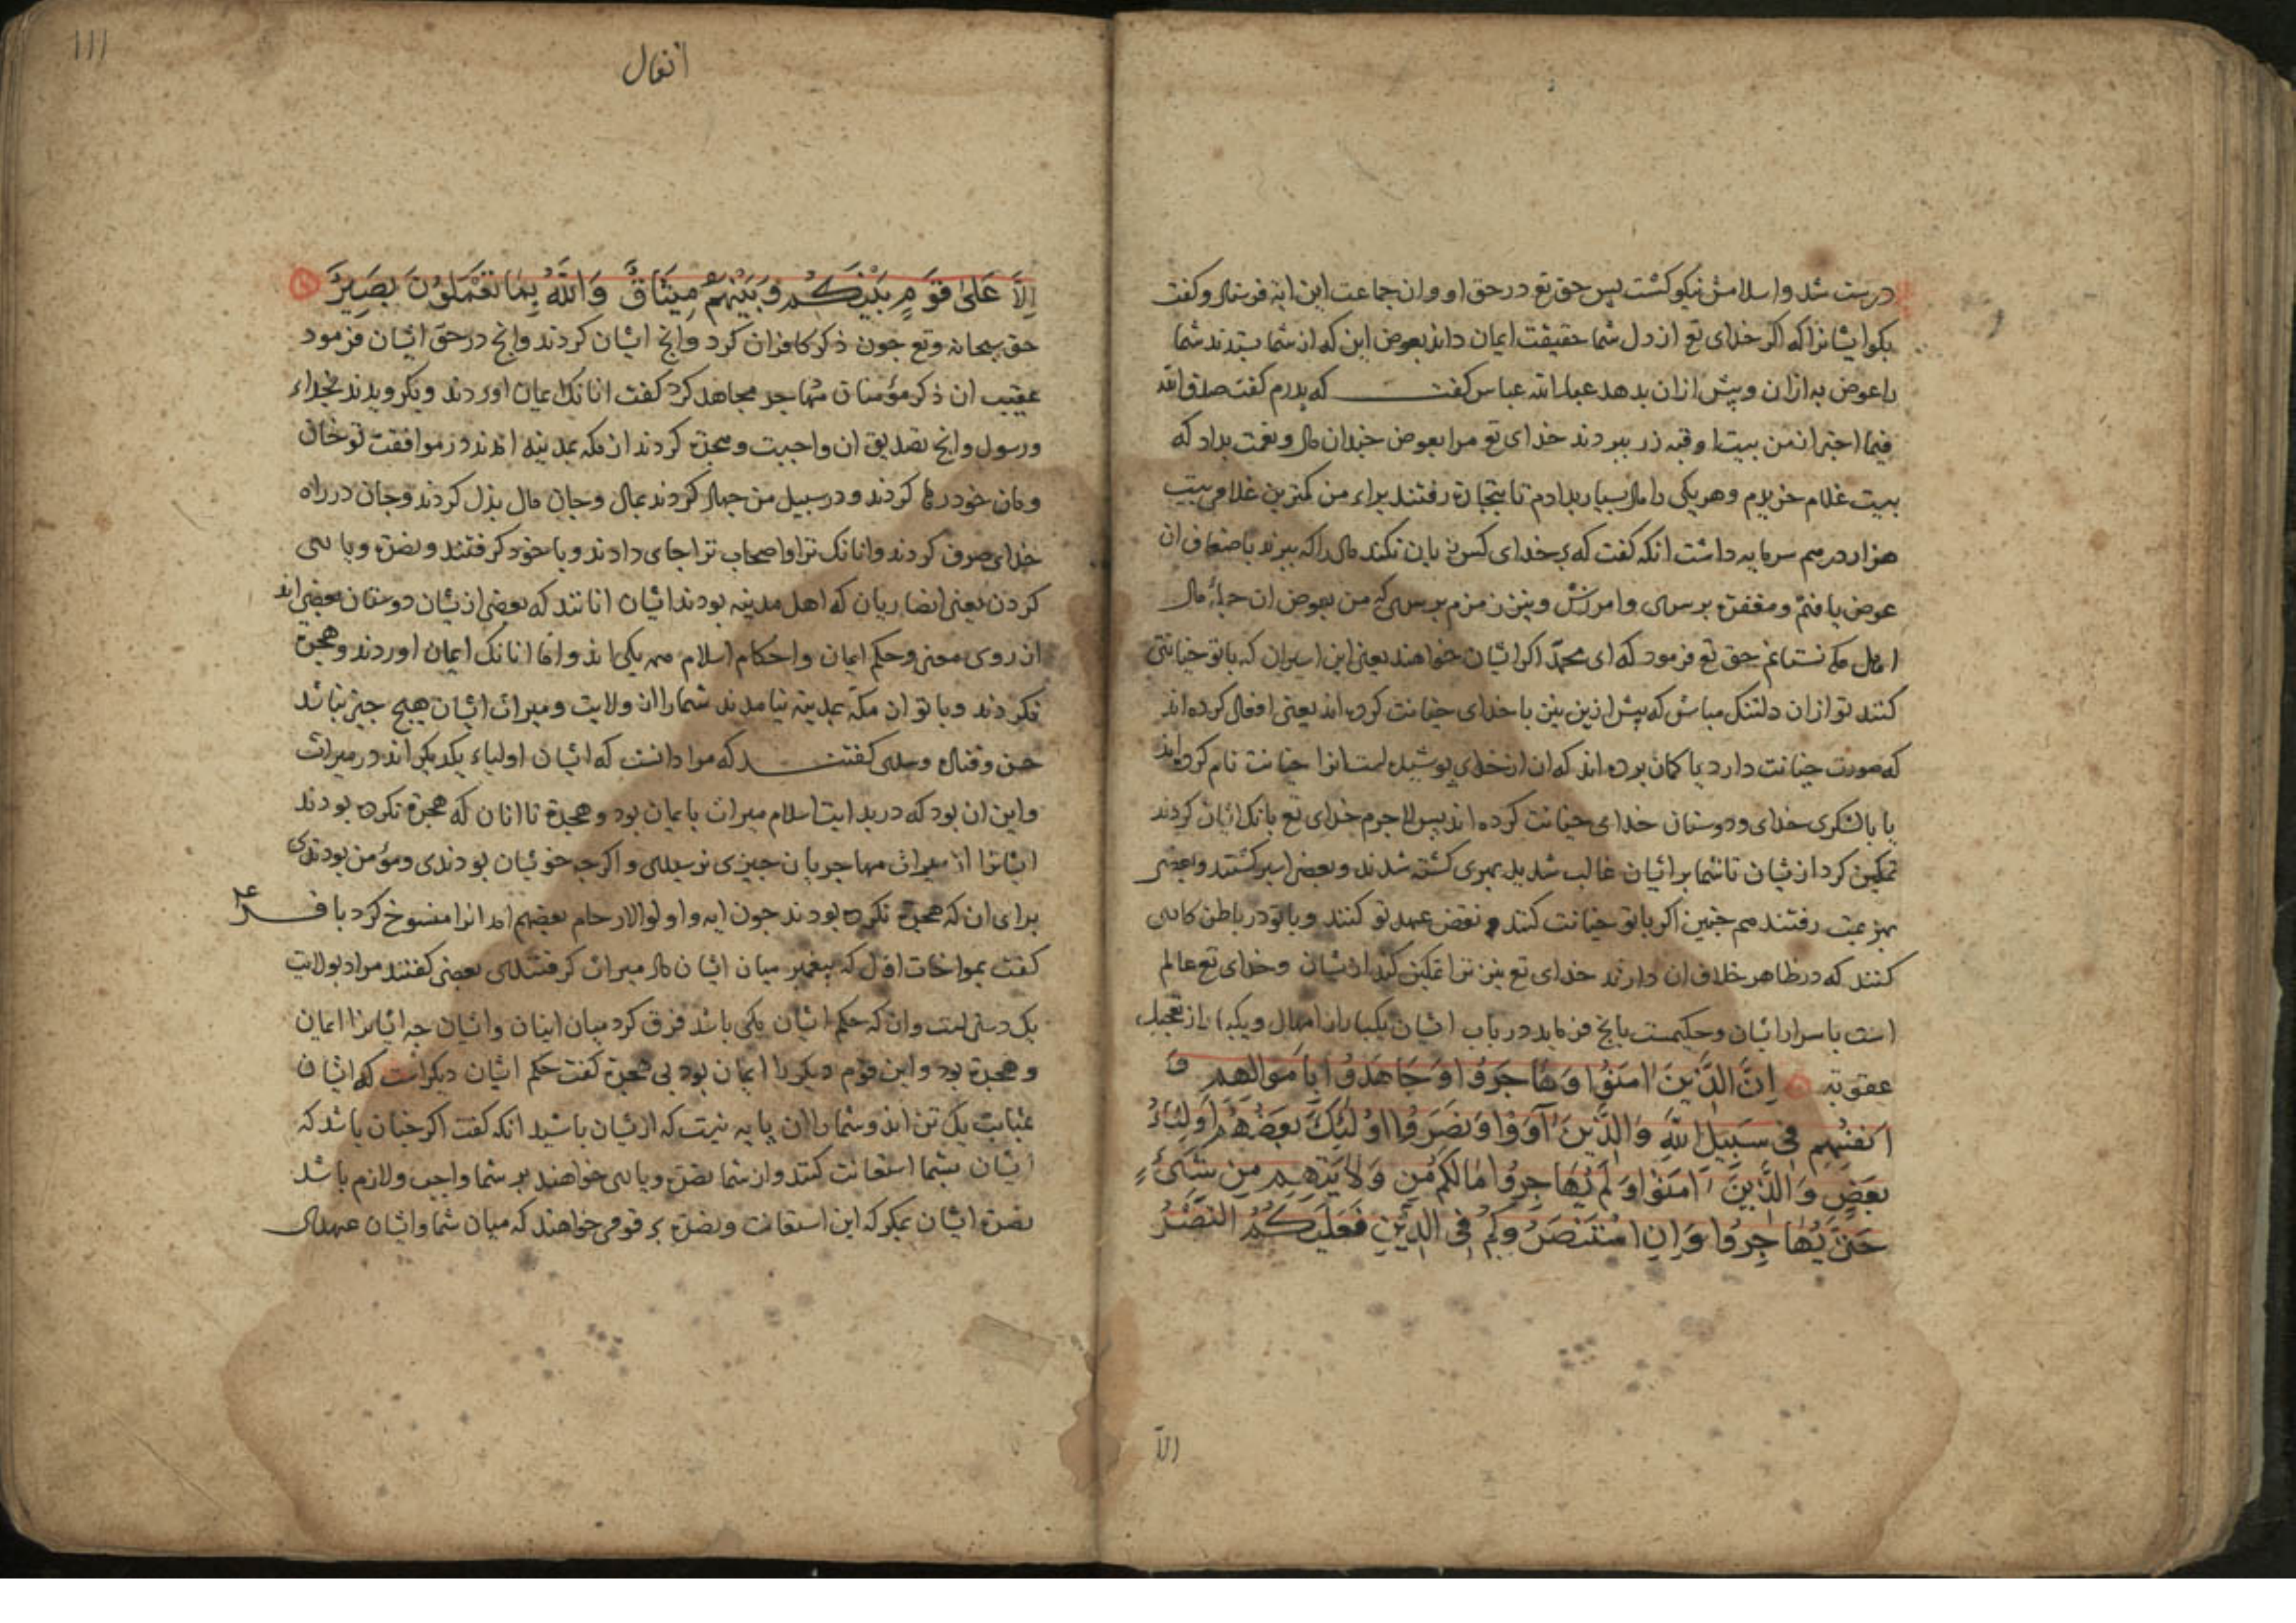 درست شد و اسلامش نیکو کشت بس حق تع در حق او و ان جماعت این ایة فرستاد و کفت
بکو ایشانرا که اکر خدای تع از دل شما حقیقت ایمان داند بعوض این که از شما بستدند شما
را عوض به ازان و بیش ازان بدهد عبدالله عباس کفت که بدرم کفت صدق الله
فیما اخبر از من بیست اوقیه زر ببردند خدای تع مرا بعوض جندان مال و نعمت بداد که
بیست غلام خریدم و هر یکی را مال بسیار بدادم تا بتجارة رفتند براء من کمترین غلامی بیست
هزار درم سرمایه داشت انکه کفت که بر خدای کس زیان نکند مال را که ببرند باضعاف ان
عوض یافتم و مغفرة برسری و امرزش و نیز زمزم برسری که من بعوض ان جملهٔ مال
اهل مکه نستانم حق تع فرمود که ای محمد اکر ایشان خواهند یعنی این اسیران که با تو خیانتی
کنند تو ازان دلتنک مباش که بیش ازین نیز با خدای خیانت کرده اند یعنی افعال کرده اند
که صورت خیانت دارد یا کمان برده اند که ان از خدای بوشیده است انرا خیانت نام کرده اند
یا با لشکری خدای و دوستان خدای خیانت کرده اند بس لاجرم خدای تع بانک ایشان کردند
تمکین کرد ازیشان تا شما بر ایشان غالب شدید بهری کشته شدند و بعضی اسیر کشتند و بعضی
بهزیمت رفتند هم جنین اکر با تو خیانت کنند و نقض عهد تو کنند و با تو در باطن کاری
کنند که در ظاهر خلاف ان دارند خدای تع نیز ترا تمکین کند ازیشان و خدای تع عالم
است باسرار ایشان و حکیمست بانج فرماید در باب ایشان یکبار از امهال و یکبار از تعجیل
عقوبة اِنَّ الَّذِينَ اٰمَنُوا وَهَاجَرُوا وَجَاهَدُوا بِاَمْوَالِهِمْ وَ
اَنْفُسِهِمْ فِي سَبِيلِ اللّٰهِ وَالَّذِينَ آوَوْا وَنَصَرُوا اُولٰئِكَ بَعْضُهُمْ اَوْلِيَاءُ
بَعْضٍ وَالَّذِينَ اٰمَنُوا وَلَمْ يُهَاجِرُوا مَا لَكُمْ مِنْ وَلَايَتِهِمْ مِنْ شَيْءٍ
حَتَّى يُهَاجِرُوا وَاِنِ اسْتَنْصَرُوكُمْ فِي الدِّينِ فَعَلَيْكُمُ النَّصْرُ
الا
۱۱۱
انفال
اِلَّا عَلٰى قَوْمٍ بَيْنَكُمْ وَبَيْنَهُمْ مِيثَاقٌ وَاللّٰهُ بِمَا تَعْمَلُونَ بَصِيرٌ
حق سبحانه و تع جون ذکر کافران کرد و انج ایشان کردند و انج در حق ایشان فرمود
عقیب ان ذکر مؤمنان مهاجر مجاهد کرد کفت انانک ایمان اوردند و بکرویدند بخداء
و رسول و انج تصدیق ان واجبست و هجرة کردند از مکه بمدینه امدند در موافقت تو خان
و مان خود رها کردند و در سبیل من جهاد کردند بمال و جان مال بذل کردند و جان در راه
خدای صرف کردند و انانک ترا و اصحاب ترا جای دادند و با خود کرفتند و نصرة و یاری
کردن یعنی انصاریان که اهل مدینه بودند ایشان انانند که بعضی ازیشان دوستان بعضی اند
از روی معنی و حکم ایمان و احکام اسلام همه یکی اند و اما انانک ایمان اوردند و هجرة
نکردند و با تو از مکه بمدینه نیامدند شما را از ولایت و میراث ایشان هیج جیز نباشد
حسن و قتاده و سدی کفتند که مراد انست که ایشان اولیاء یکدیکر اند در میراث
و این ان بود که در بدایت اسلام میراث بایمان بود و هجرة تا انان که هجرة نکرده بودند
ایشانرا از میراث مهاجریان جیزی نرسیدی و اکرجه خویشان بودندی و مؤمن بودندی
برای ان که هجرة نکرده بودند جون ایه و اولوا الارحام بعضهم امد انرا منسوخ کرد باقر ع
کفت بمواخات اول که بیغمبر میان ایشان داد میراث کرفتندی بعضی کفتند مراد بولایت
یک دستی است و ان که حکم ایشان یکی باشد فرق کرد میان اینان و ایشان جه ایشانرا ایمان
و هجرة بود و این قوم دیکر را ایمان بود بی هجرة کفت حکم ایشان دیکر است که ایشان
بمثابت یک تن اند و شما را ان پایه نیست که ازیشان باشید انکه کفت اکر جنان باشد که
ایشان بشما استعانت کنند و از شما نصرة و یاری خواهند بر شما واجب و لازم باشد
نصرة ایشان مکر که این استعانت و نصرة بر قومی خواهند که میان شما و ایشان عهدی